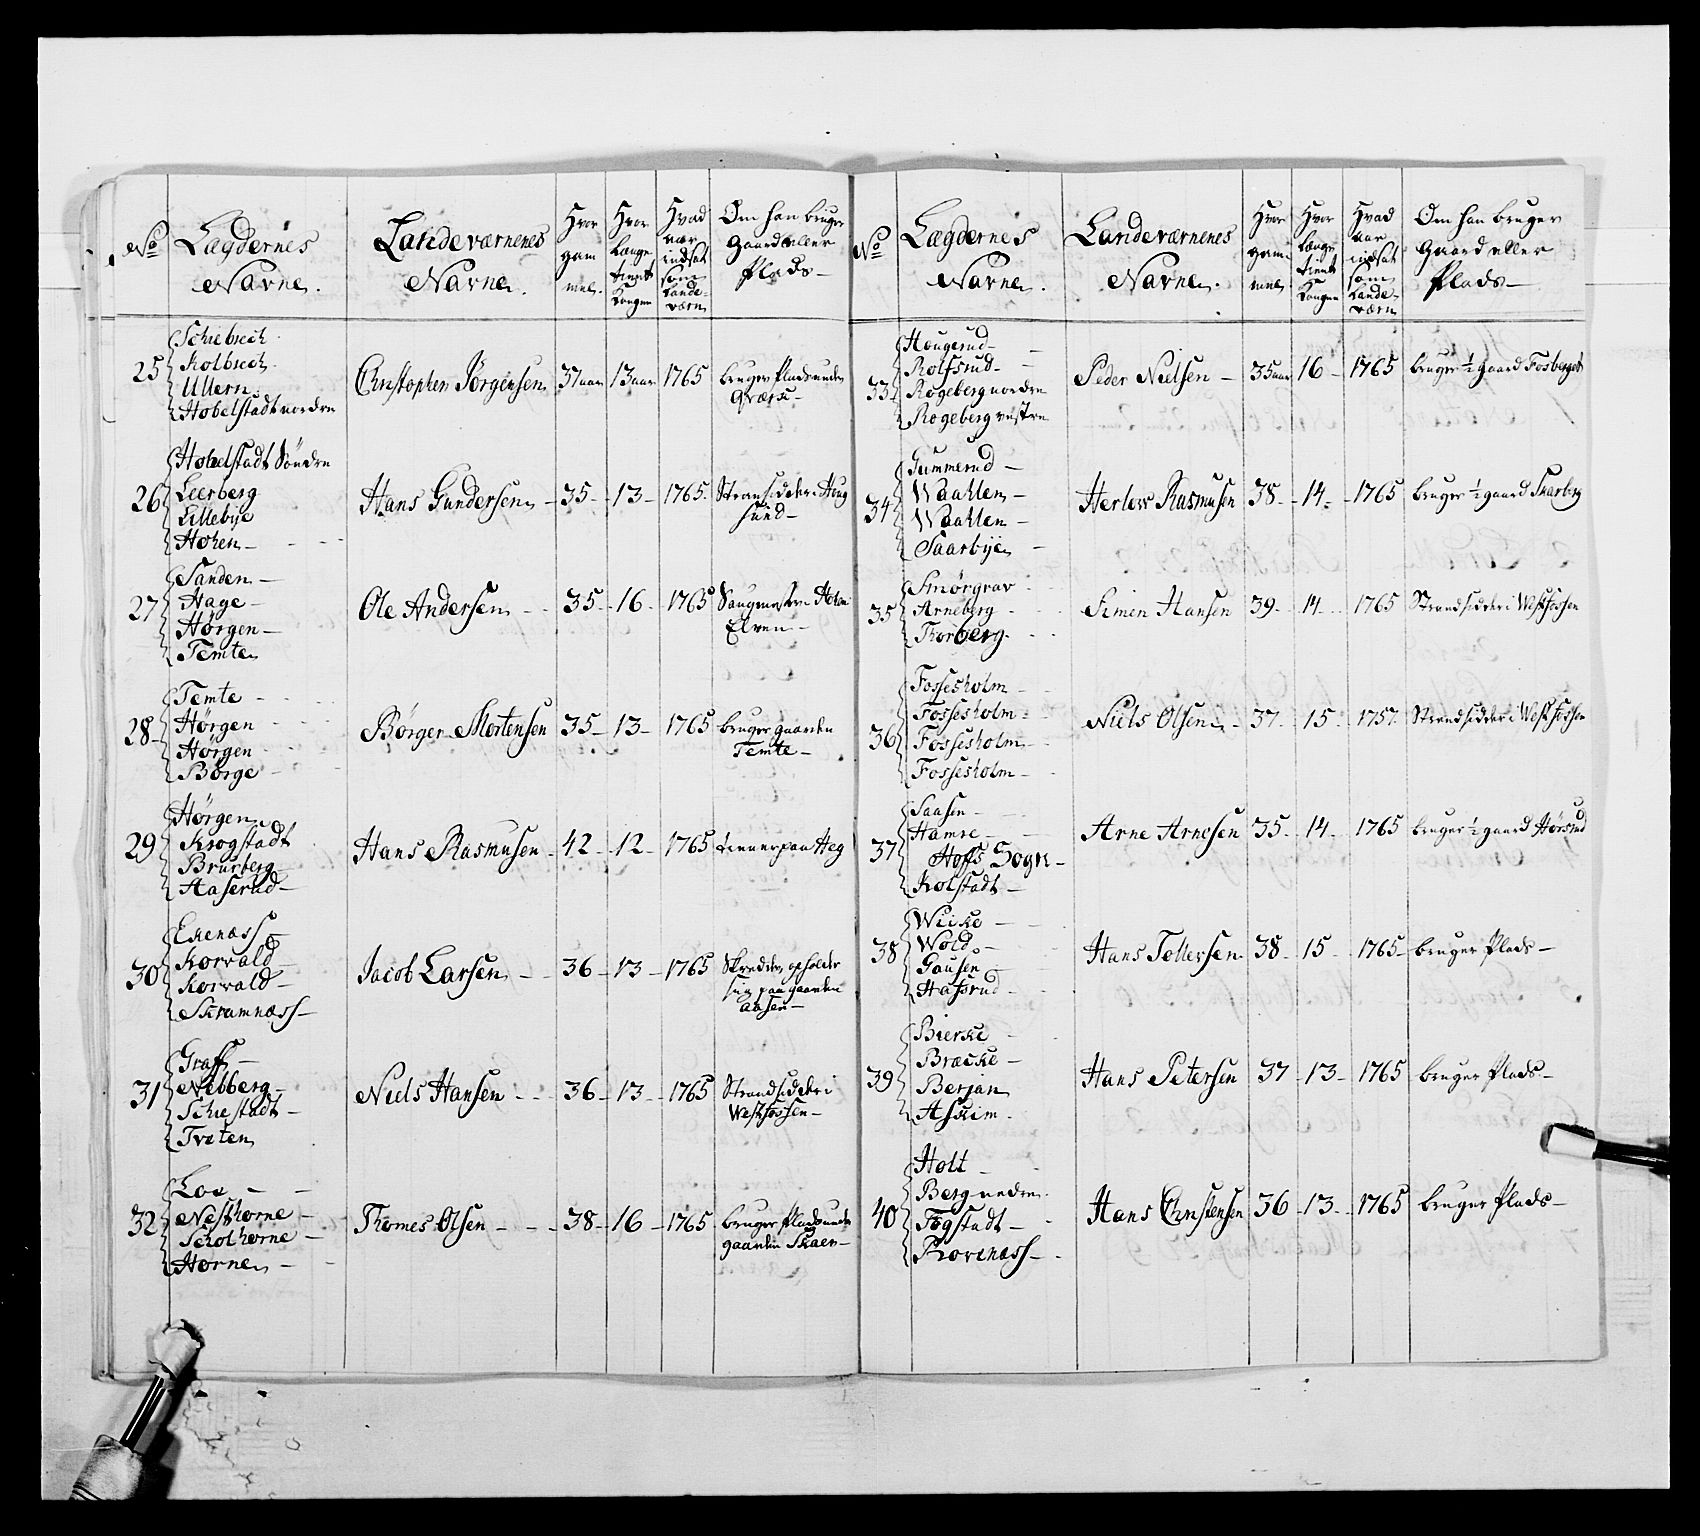 No
Lægdernes
Navne.
Landeværnenes
Navne.
Hvor
gam
mel.
Hvor
længe
tient
Kongen
Hvad
aar
indsat
som
Lande-
værn
Om han bruger
Gaard eller
Plads—
25
Schiebrech
Kolbrech
Ullern
Hobelstadt nordre
Christopher Jørgensen
37 aar
13 aar
1765
bruger Plads under
26
Hobelstadt Söndre
Leerberg
Lillebye
Hohen—
Hans Gundersen —
35—
13—
1765.
Strandsidder i Houg
sund—
27
Sanden—
Hage—
Hørgen—
Temte
Ole Andersen
35—
16—
1765
Elven—
28—
Temte—
Hørgen
Hørgen
Børge—
Børger Mortensen
35—
13—
1765
bruger gaarden
Temte—
29
Hørgen
Krogstadt
Brurberg
Aaserud—
Hans Rasmusen
42—
12—
1765
tienner paa Heg
30
Ekenæss—
Korvald—
Korvald—
Skramnæss—
Jacob Larsen —
36—
13—
1765
Skredder, opholder
sig paa gaarden
Aasen—
31
Graff—
Nebberg—
Schiestadt—
Tveten
Niels Hansen
36—
13—
1765
Strandsidder i
Westfossen—
32
Loe —
Nesthorne—
Schothorne—
Horne—
Thomes Olsen —
38—
16—
1765
bruger Plads under
gaarden Skaen—
No
Lægdernes
Navne.
Landeværnenes
Navne.
Hvor
gam
mel
Hvor
længe
tient
Kongen
Hvad
aar
indsat
som
Lande-
værn
Om han bruger
Gaard eller
Plads—
33
Hougerud—
Rolfsrud—
Rogeberg nordre
Rogeberg vestre
Peder Nielsen —
35 aar
16—
1765
bruger ½ gaard Fosberget
34
Gummerud—
Waahlen—
Waahlen—
Saarbye
Herlow Rasmusen
38—
14—
1765
bruger ½ gaard Skarberg
35
Smørgrav
Arneberg
Thorberg
Simen Hansen
39—
14—
1765
Strandsidder i Westfossen
36
Fossesholm—
Fossesholm—
Fossesholm—
Fossesholm—
Niels Olsen —
37—
15—
1757.
Strandsidder i Westfossen
37
Saasen—
Hamre—
Hoffs Sogn—
Kolstadt—
Arne Arnesen
35—
14—
1765
bruger ½ gaard Hørsrud
38
Wicke—
Wold—
Gausen
Hassrud
Hans Tollersen
38—
15—
1765—
bruger Plads—
39
Bierke
Bræcke—
Berjan
Askim
Hans Petersen
37
13—
1765
bruger Plads—
40
Holt—
Berg nedre
Fogstadt—
Rovenæss—
Hans Christensen
36
13—
1765
bruger Plads—